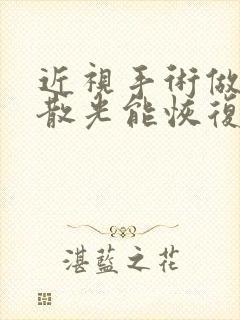 近視手術做
散光能恢復
湛藍之花